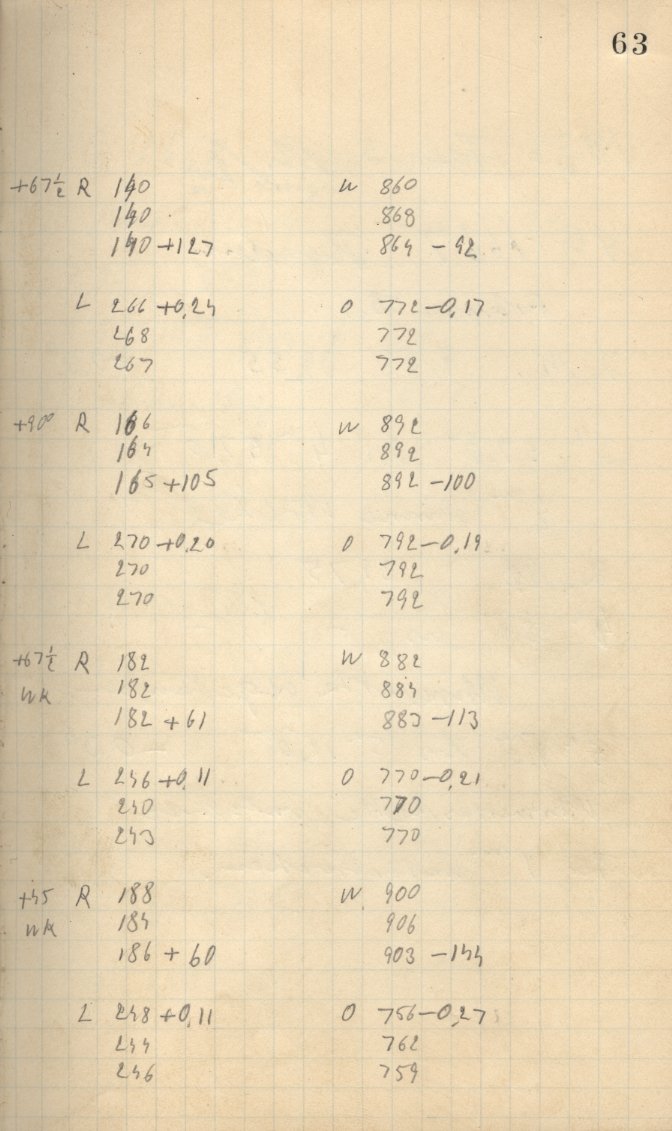 63
+67½ R 140 W 860
140 868
140 +127 864 -92
L 266 +0,24 O 772 -0,17
268 772
267 772
+90° R 166 W 892
164 892
165 +105 892 -100
L 270 +0,20 O 792 -0,19
270 792
270 792
+67½ R 182 W 882
WK 182 884
182 +61 883 -113
L 246 +0,11 O 770 -0,21
240 770
243 770
+45 R 188 W 900
WK 184 906
186 +60 903 -144
L 248 +0,11 O 756 -0,27
244 762
246 759